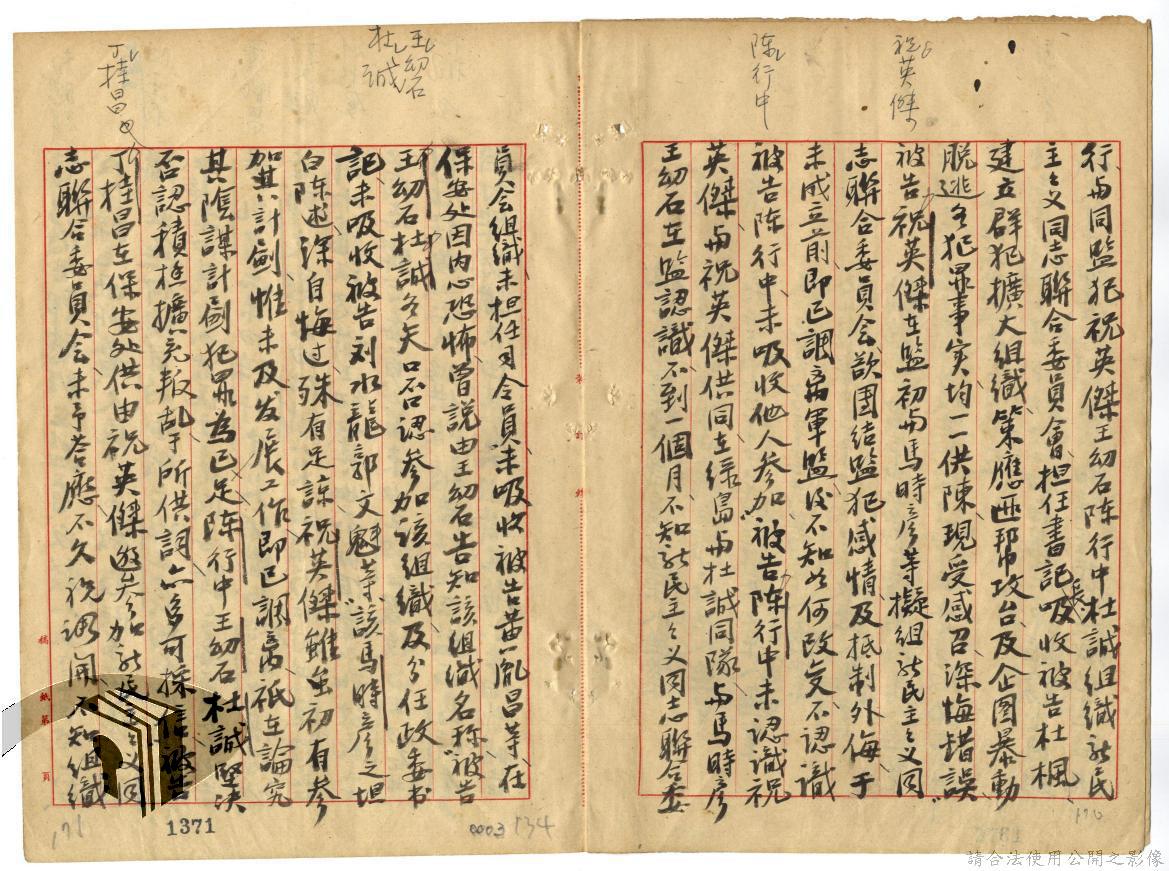 祝英傑
陈行中
行与同監犯祝英傑王幼石陈行中杜誠組織新民
主主义同志聯合委員會担任書記長吸收被告杜楓
建立群犯擴大組織策應匪帮攻台及企图暴動
脱逃各犯罪事实均一一供陳現受感召深悔錯誤
被告祝英傑在監初与馬時彦等擬組新民主主义同
志聯合委員会欲团结監犯感情及抵制外侮于
未成立前即已調离軍監後不知如何改变不認識
被告陈行中未吸收他人参加被告陈行中未認識祝
英傑与祝英傑供同在绿島与杜誠同隊与馬時彦
王幼石在監認識不到一個月不知新民主主义同志聯合委
170
王幼石
杜誠
丁桂昌
員会組織未担任司令員未吸收被告黄胤昌等在
保安处因内心恐怖曾説由王幼石告知該組織名称被告
王幼石杜誠各矢口否認参加该組織及分任政委书
記未吸收被告刘水龍郭文魁等該馬時彦之坦
白陈述深自悔过殊有足諒祝英傑雖至初有参
加其計劃惟未及发展工作即已調离祇在論究
其陰謀計劃犯罪為已足陈行中王幼石杜誠堅决
否認積极擴充叛乱于所供詞亦多可採信被告
丁桂昌在保安处供由祝英傑邀参加新民主主义同
志聯合委員会未予答應不久祝调開不知組織
171
1371
0003
134
稿紙第 頁
請合法使用公開之影像